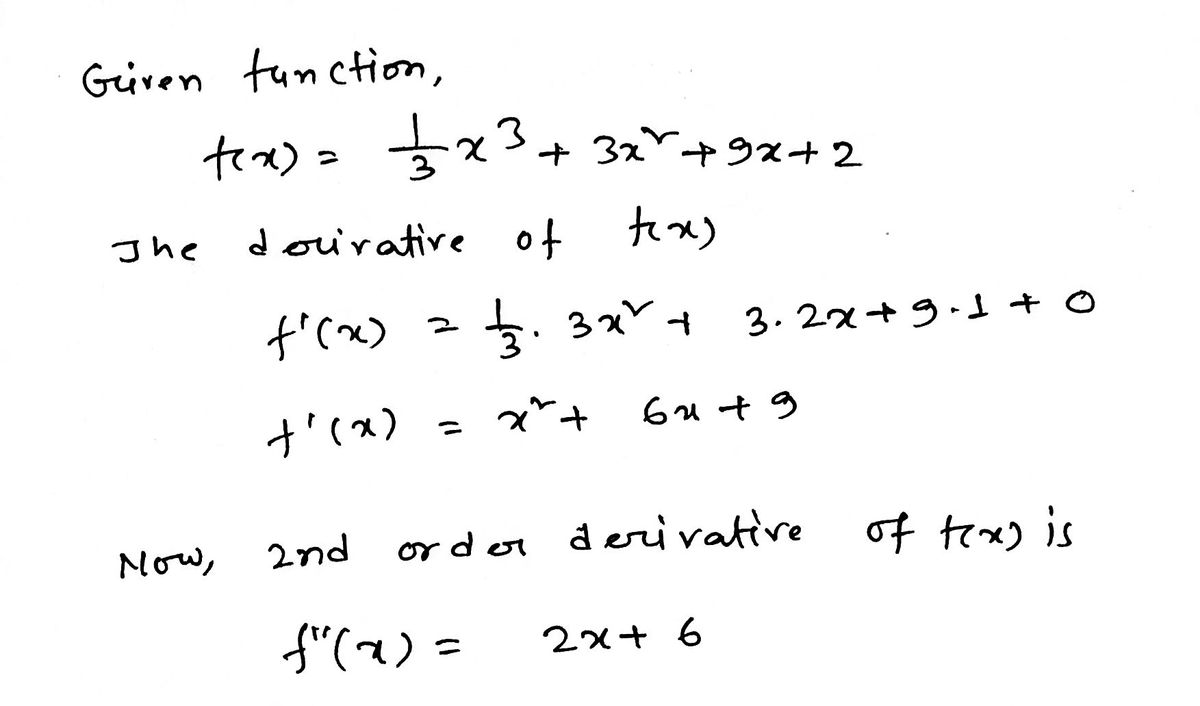 Given function,
f(x) = 1/3 x³ + 3x² + 9x + 2
The derivative of f(x)
f'(x) = 1/3 · 3x² + 3·2x + 9·1 + 0
f'(x) = x² + 6x + 9
Now, 2nd order derivative of f(x) is
f''(x) = 2x + 6